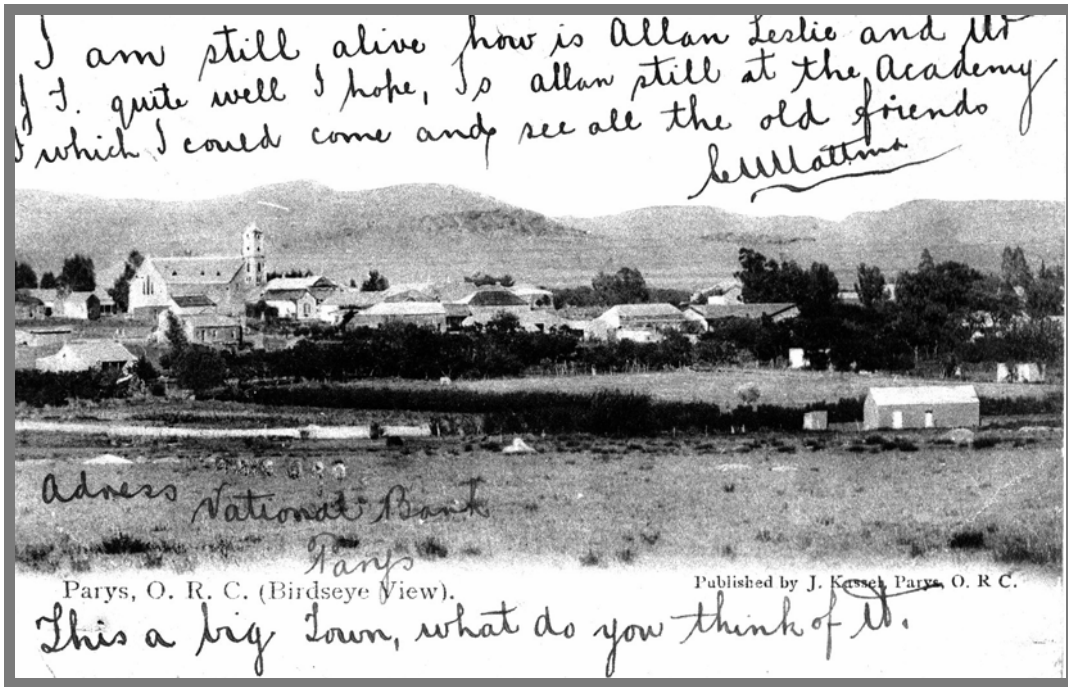 I am still alive how is Allan Leslie and Mr
J. T. quite well I hope, Is allan still at the Academy
I which I could come and see all the old friends
Adress
National Bank
Parys
Parys, O. R. C. (Birdseye View).
Published by J. Kassel, Parys, O. R C.
This a big Town, what do you think of it.